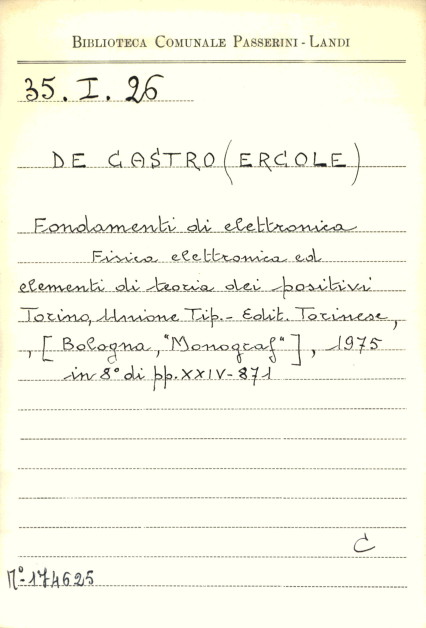 BIBLIOTECA COMUNALE PASSERINI - LANDI
35. I. 26
DE CASTRO (ERCOLE)
Fondamenti di elettronica
Fisica elettronica ed
elementi di teoria dei positivi
Torino, Unione Tip. - Edit. Torinese,
, [Bologna, "Monograf"], 1975
in 8° di pp. XXIV - 871
C
N° 174625